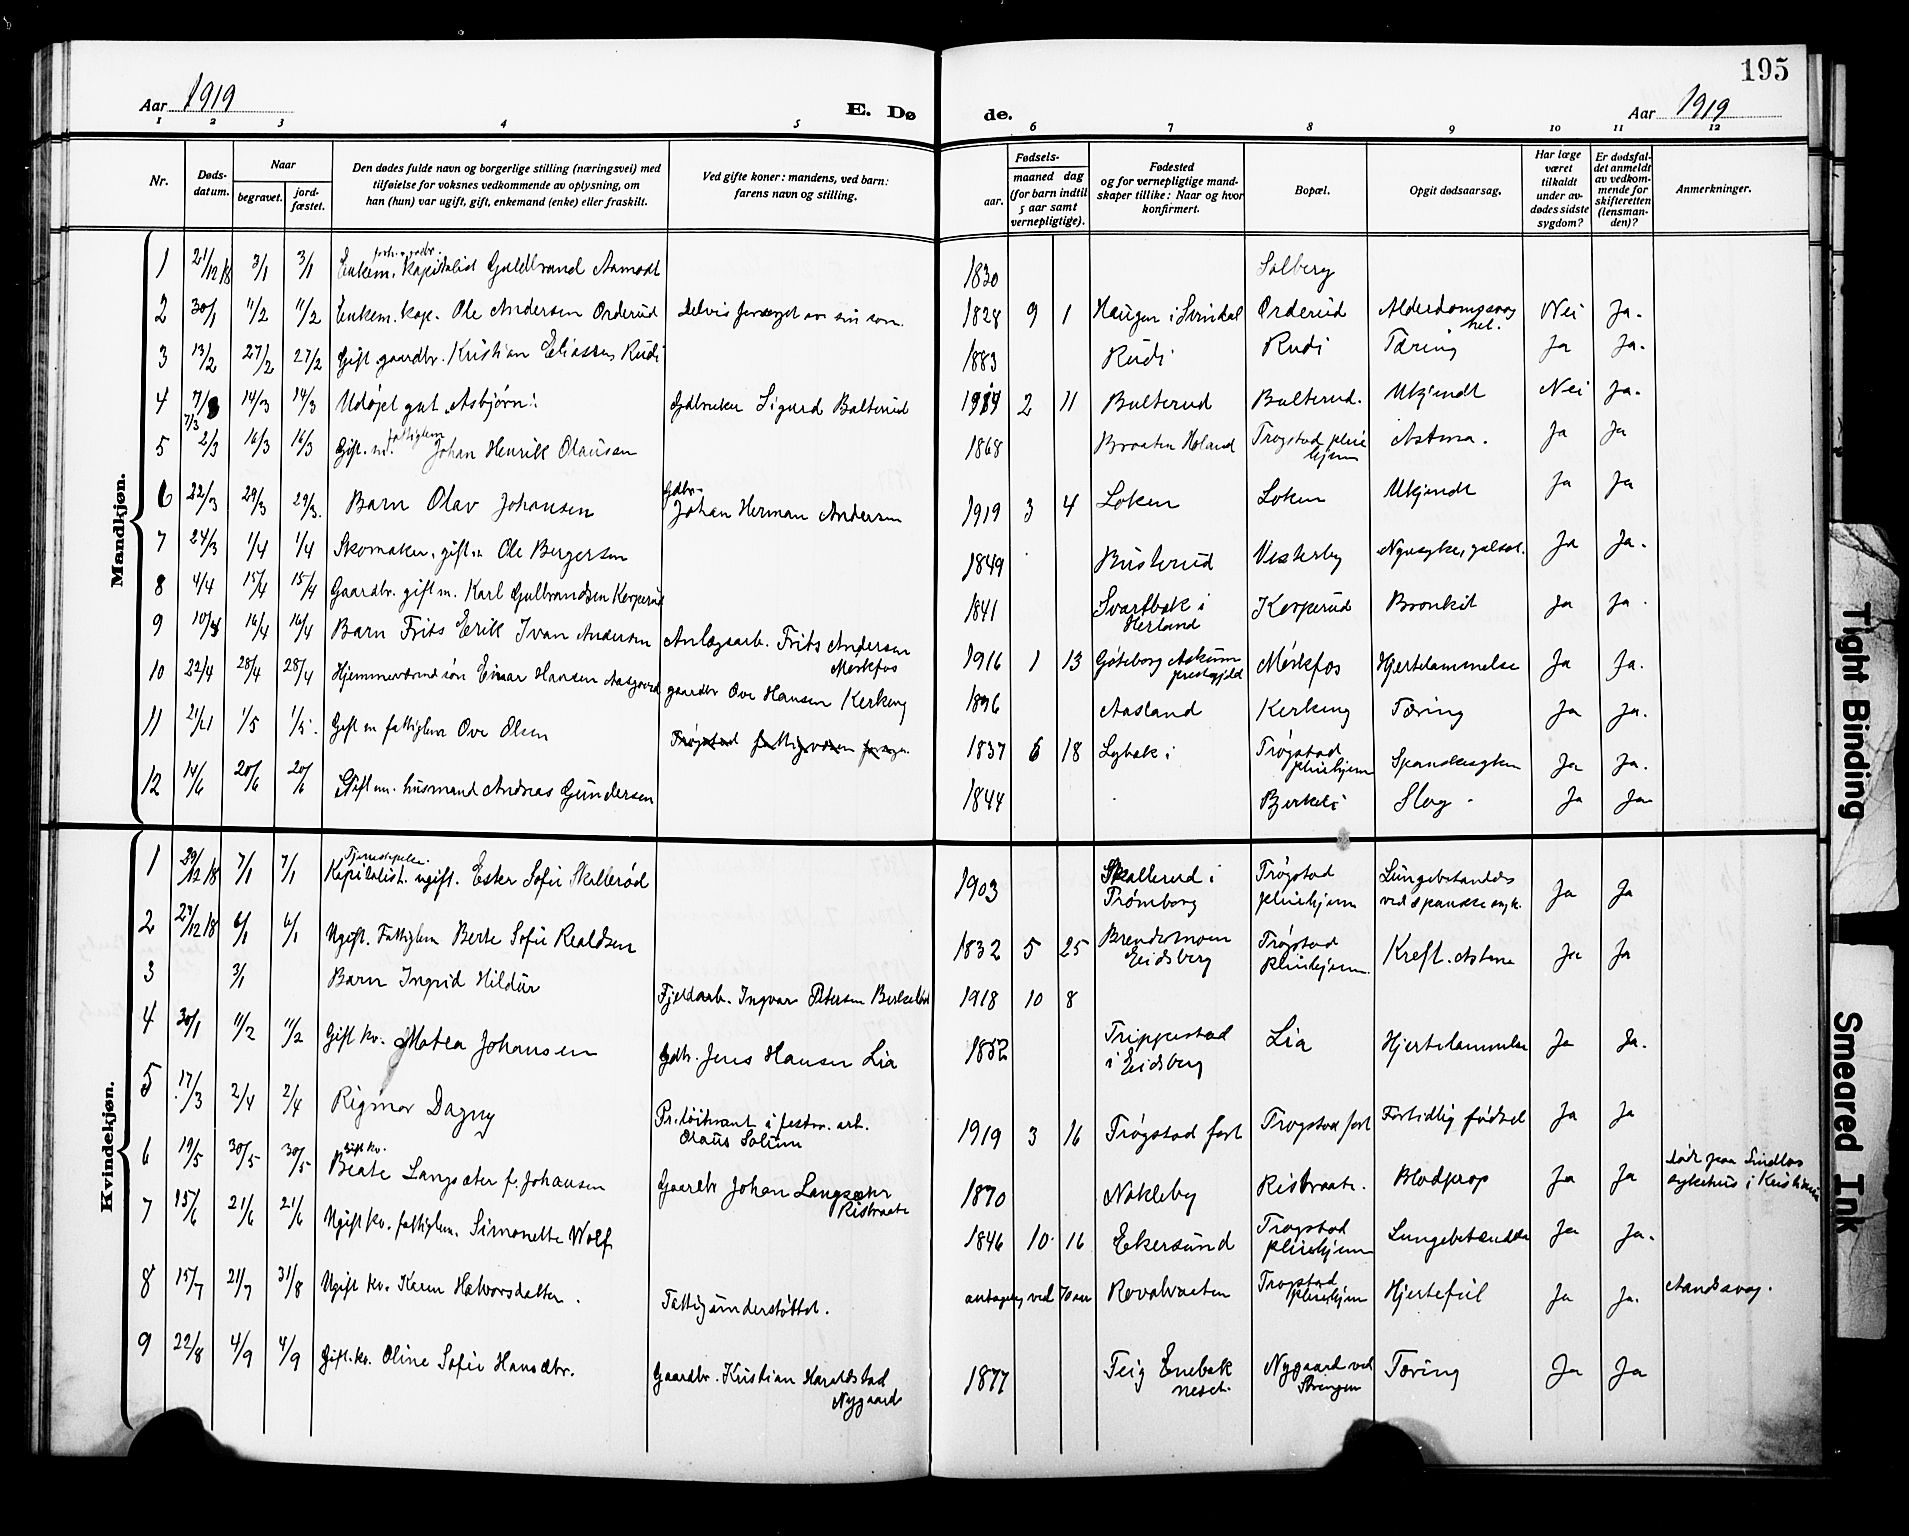 195
Aar 1919
E. Dø
de.
Aar 1919
1 2 3 4 5 6 7 8 9 10 11 12
Nr.
Døds-
datum.
Naar
begravet.
jord-
fæstet.
Den dødes fulde navn og borgerlige stilling (næringsvei) med
tilføielse for voksnes vedkommende av oplysning, om
han (hun) var ugift, gift, enkemand (enke) eller fraskilt.
Ved gifte koner: mandens, ved barn:
farens navn og stilling.
Fødsels-
aar.
maaned dag
(for barn indtil
5 aar samt
vernepligtige).
Fødested
og for vernepligtige mand-
skaper tillike: Naar og hvor
konfirmert.
Bopæl.
Opgit dødsaarsag.
Har læge
været
tilkaldt
under av-
dødes sidste
sygdom?
Er dødsfal-
det anmeldt
av vedkom-
mende for
skifteretten
(lensman-
den)?
Anmerkninger.
Mandkjøn.
1 21/12 18 3/1 3/1 Enkem. kapitalist Guldbrand Aamodt 1830 Solberg
2 30/1 11/2 11/2 Enkem. kap. Ole Andersen Orderud Delvis forsørget av sin søn. 1828 9 1 Haugen i Svindal Orderud Alderdomssvag
het. Nei Ja.
3 13/2 27/2 27/2 Gift gaardbr. Kristian Eliassen Rudi 1883 Rudi Rudi Tæring Ja Ja.
4 7/3 14/3 14/3 Udøpt gut "Asbjørn" Gdbruker Sigurd Balterud 1919 2 11 Balterud Balterud. Ukjendt Nei Ja.
7/3
5 2/3 16/3 16/3 Gift. m. fattiglem Johan Henrik Olausen 1868 Braaten Høland Trøgstad pleie
hjem Astma. Ja Ja
6 22/3 29/3 29/3. Barn Olav Johansen Gdbr.
Johan Herman Andersen 1919 3 4 Løken Løken Ukjendt Ja Ja
7 24/3 1/4 1/4 Skomaker, gift m. Ole Bergersen 1849 Busterud Vesterby Ja Ja.
8 4/4 15/4 15/4 Gaardbr. gift m. Karl Gulbrandsen Kerperud 1841 Svartbæk i
Herland Kerperud Bronkit Ja Ja.
9 10/4 16/4 16/4 Barn Frits Erik Ivan Andersen Anlægsarb. Frits Andersen
Mørkfos 1916 1 13 Gøteborg Askum
prestegjeld Mørkfos Hjertelammelse Ja Ja.
10 22/4 28/4 28/4 Hjemmeværende søn Einar Hansen Aasgaard gaardbr Ove Hansen Kerkeng 1896 Aasland Kerkeng Tæring Ja Ja.
11 21/4 1/5 1/5. Gift m fattiglem Ove Olsen Trøgstad fattigvæsen 1837 6 18 Lybæk i Trøgstad
pleiehjem Spanskesyken Ja Ja.
12 14/6 20/6 20/6 Gift m. husmand Andreas Gundersen 1844 Bjerkeli Slag Ja Ja
Kvindekjøn.
1 29/12 18 7/1 7/1 Tjenestepike.
Kapitalist. ugift. Ester Sofie Skallerød 1903 Skallerud i
Trømborg Trøgstad
pleiehjem Lungebetændels
ved spanske syk. Ja Ja
2 27/12 18 6/1 6/1 Ugift. Fattiglem Berte Sofie Realdsen 1832 5 25 Brendemoen
Eidsberg Trøgstad
pleiehjem. Kreft. Ja Ja
3 3/1 Barn Ingrid Hildur Fjeldarb. Ingvar Petersen 1918 10 8
4 30/1 11/2 11/2 Gift kv. Matea Johansen Gdbr. Jens Hansen Lia 1852 Trippestad
i Eidsberg Lia Hjertelammelse Ja Ja.
5 17/3 2/4 2/4 Rigmor Dagny Pr. løitnant i festn. art.
Olaus Solum 1919 3 16 Trøgstad fort Trøgstad fort Fortidlig fødsel Ja Ja
6 19/5 30/5 30/5 Gift kv.
Beate Langsæter f. Johansen Gaardbr Johan Langsæter
Ristvaate 1870 Nokleby Blodprop Ja Ja død paa Lindlos
sykehus i Kristiania
7 15/6 21/6 21/6 Ugift kv. fattiglem. Simonette Wolf 1846 10 16 Ekersund Trøgstad
pleiehjem Lungebetændelse Ja Ja.
8 15/7 21/7 31/8 Ugift kv. Karen Halvorsdatter. Fattigunderstøttet. antagelig ved 70 aar Trøgstad
pleiehjem Hjertefeil Ja Ja. Aandssvag.
9 22/8 4/9 4/9 Gift.kv. Oline Sofie Hansdtr. Gaardbr. Kristian Haraldstad
Nygaard 1877 Teig Enebak
Nygaard ved
Tæring Ja Ja
Tight Binding
Smeared Ink